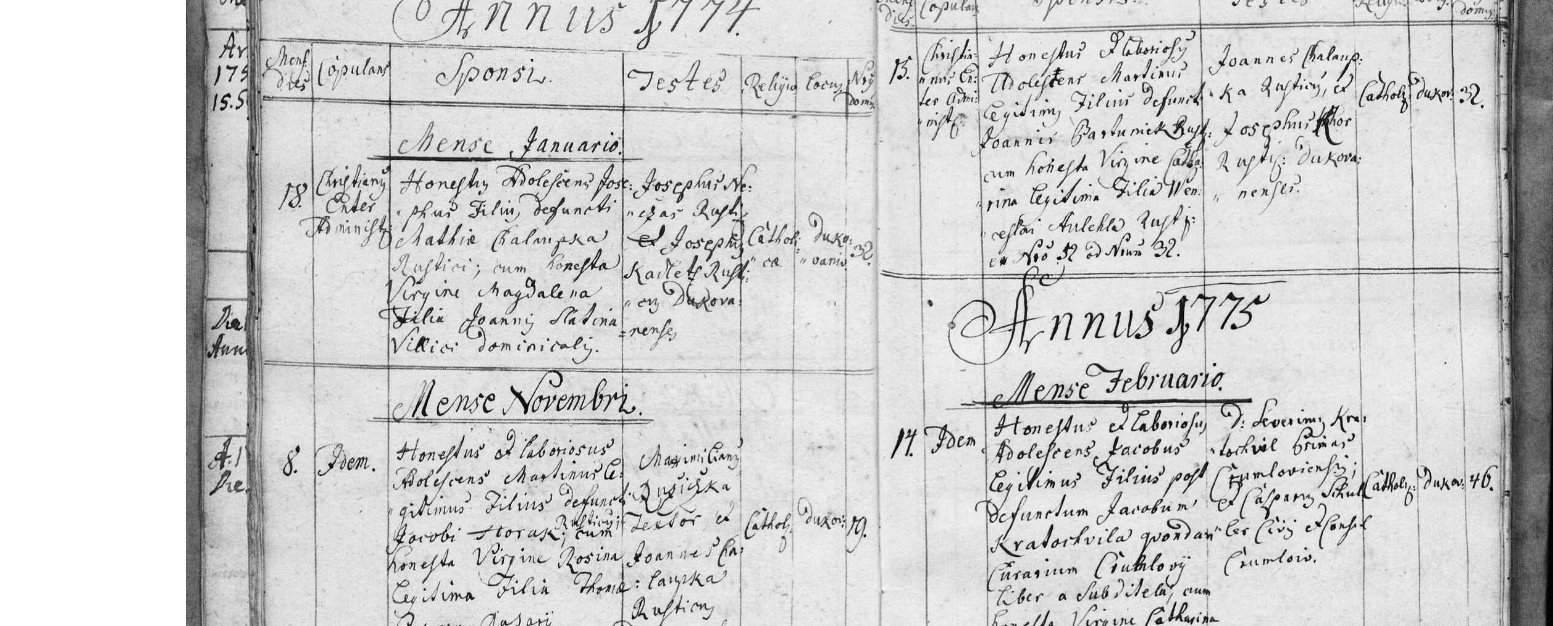 Annus 1774.
Mens: dies
Copulans
Sponsi.
Testes
Religio
Locus
Nrus domus
Mense Januario.
18.
Christianus
Enter
Administ:
Honestus Adolescens Jose:
phus Filius defuncti
Mathiæ Chalaupka
Rustici; cum honesta
Virgine Magdalena
Filia Joannis Slatina
Villici dominicalis.
Josephus Ne:
Rusti:
et Josephus
Rusti:
cus Dukova:
nenses
Catholi:
cæ
Duko:
vanis
32.
Mense Novembri.
8.
Idem.
Honestus et laboriosus
Adolescens Martinus Le:
gitimus Filius defuncti
Jacobi Horak Rustici; cum
honesta Virgine Rosina
Legitima Filia Thomæ
Maximilianus
Ruzicska
Textor et
Joannes Cha:
laupka
Rusticus
Cathol:
Dukov:
19.
15.
Christia:
nus En:
ter Admi:
nist:
Honestus et laboriosus
Adolescens Martinus
Legitimus Filius defuncti
Joannis Bartunek Rust:
cum honesta Virgine Catha:
rina Legitima Filia Wen:
ceslai Aulehla Rusti:
ex Nro 52 ad Nrum 32.
Joannes Chalaup:
ka Rusticus, et
Josephus Khor
Rusti: Dukova:
nenses.
Cathol:
Dukov:
32.
Annus 1775
Mense Februario.
14.
Idem
Honestus et laboriosus
Adolescens Jacobus
Legitimus Filius post
defunctum Jacobum
Kratochvila quondam
liber a Subditela, cum
honesta Virgine Catharina
D: Severinus Kra:
tochvil
Crumloviensis;
et Casparus
Civis et Consul
Crumlov.
Cathol:
Dukov:
46.